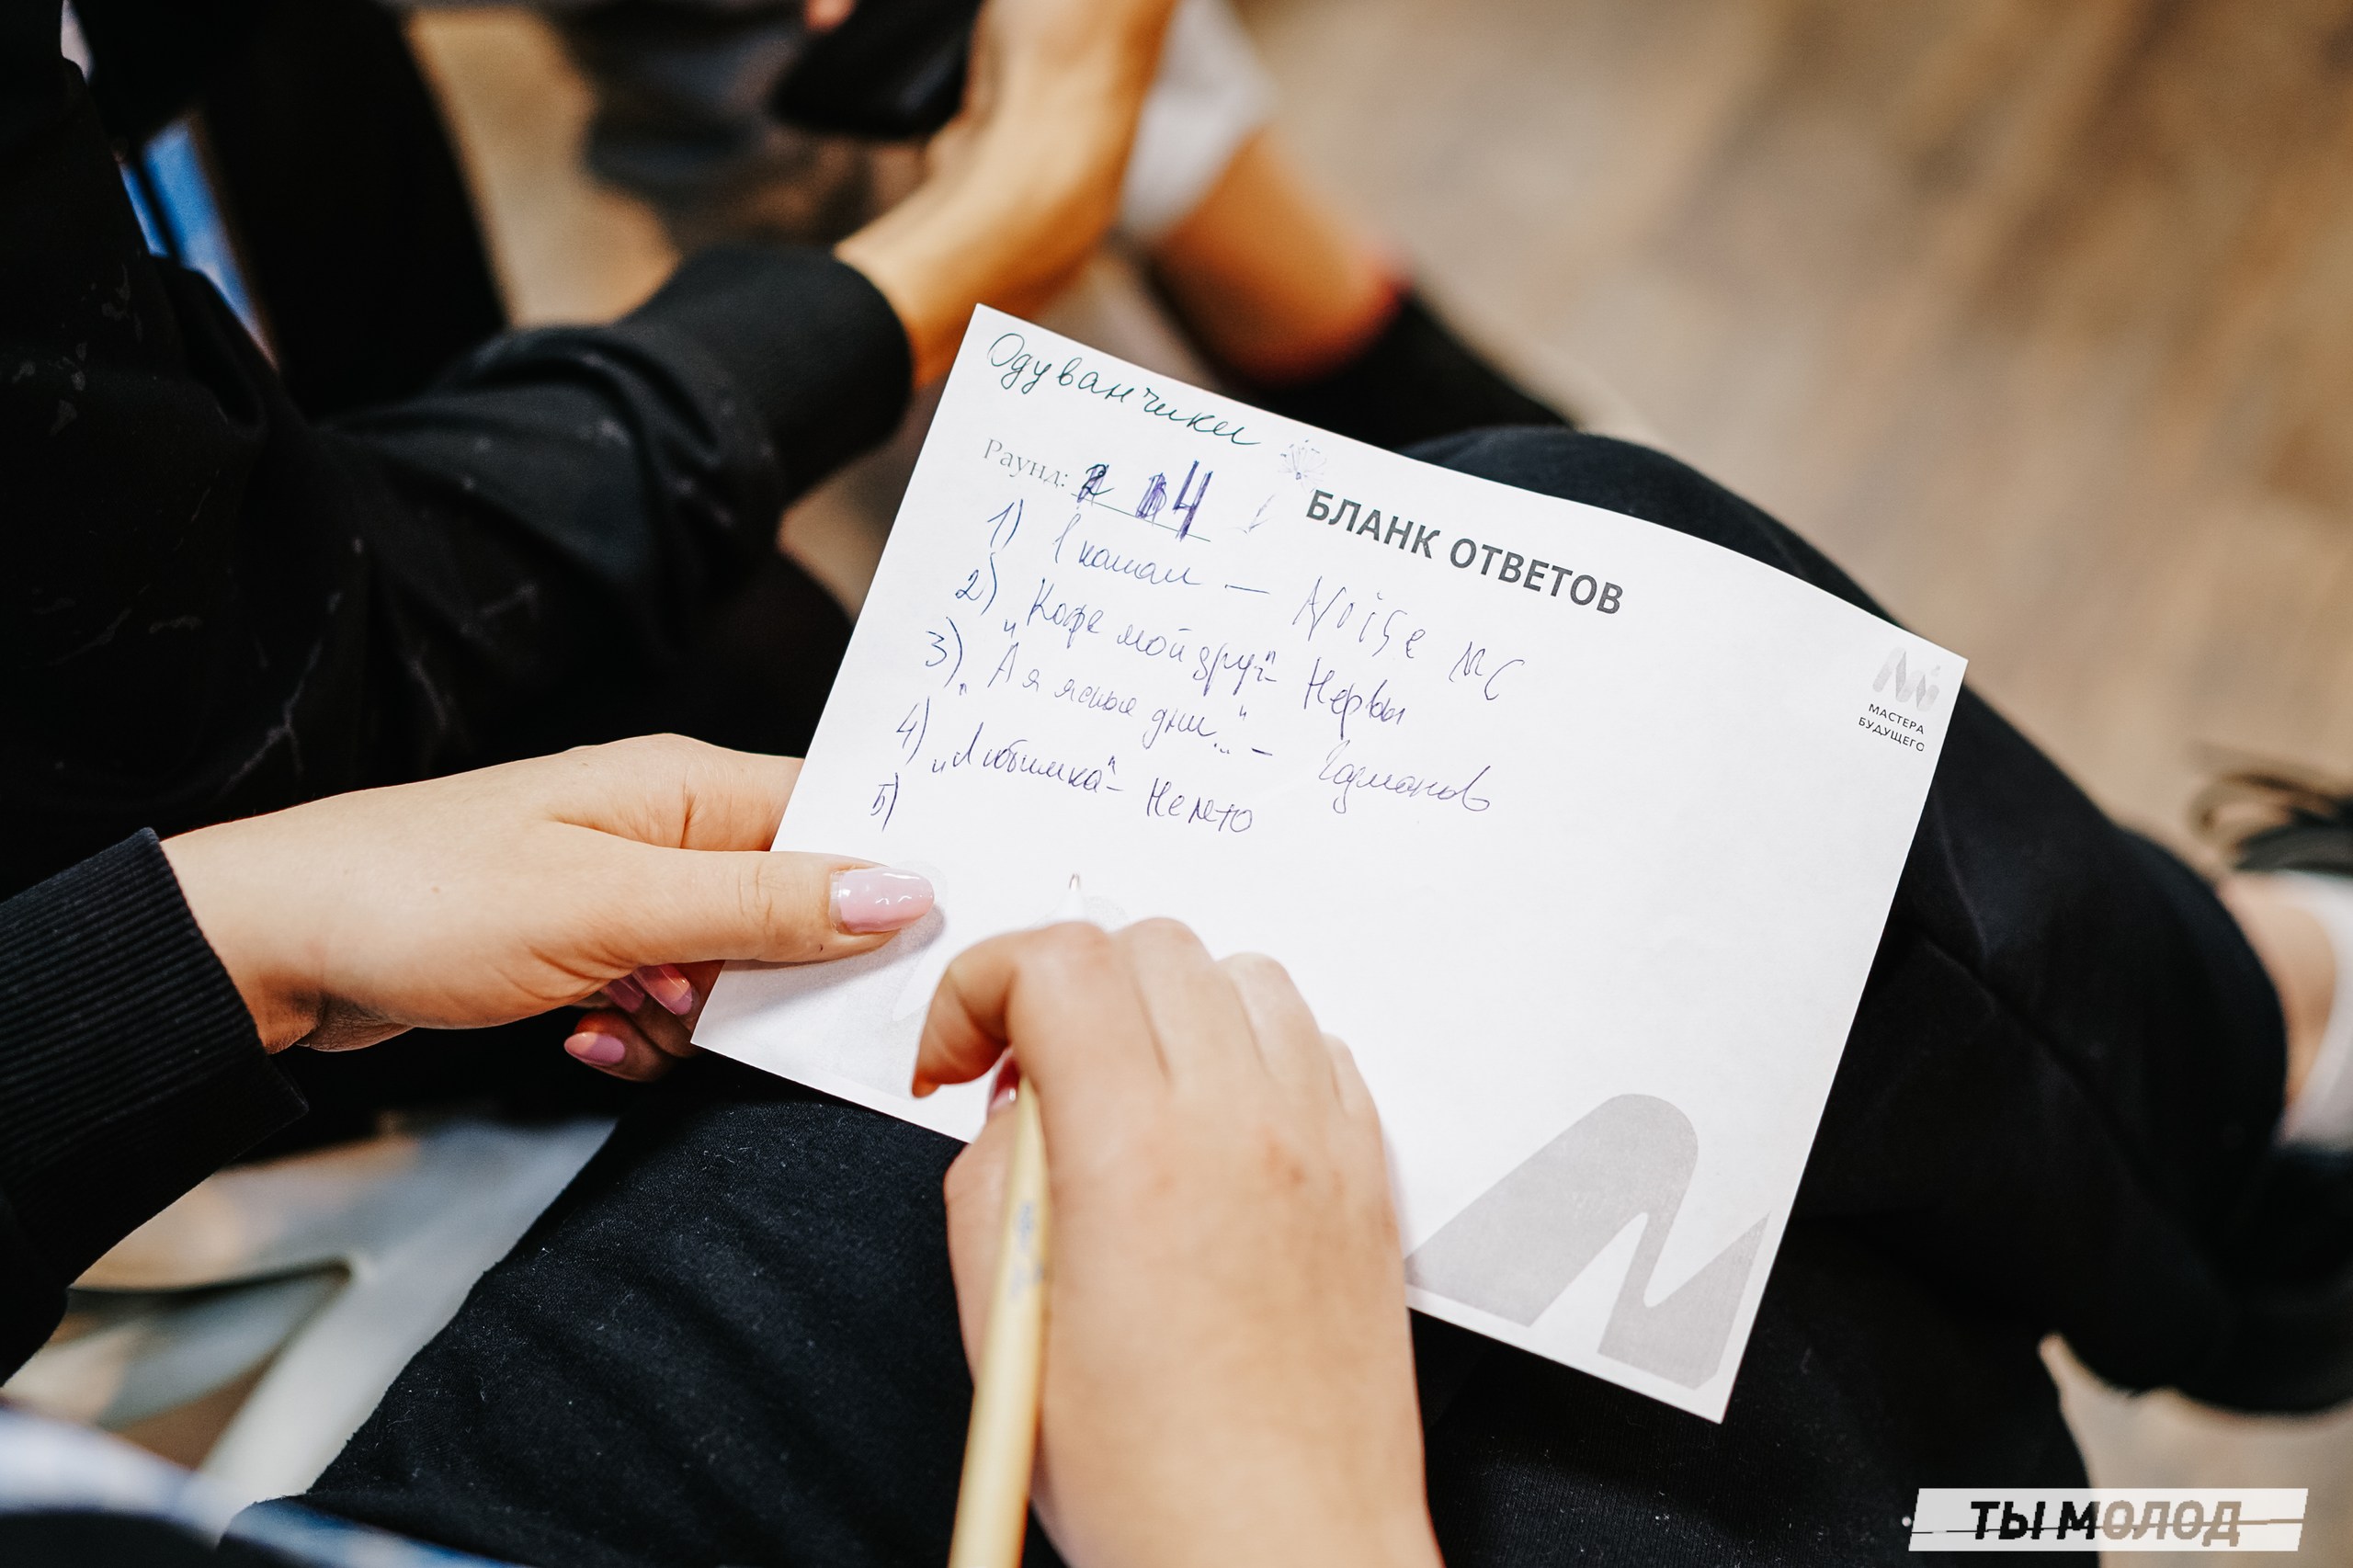 Одуванчики
Раунд: 4
БЛАНК ОТВЕТОВ
1) 1 канал — Noise MC
2) „Кофе мой друг" - Нервы
3) „А я ясные дни..." - Газманов
4) „Любимка" - Нилетто
5)
МАСТЕРА
БУДУЩЕГО
ТЫ МОЛОД